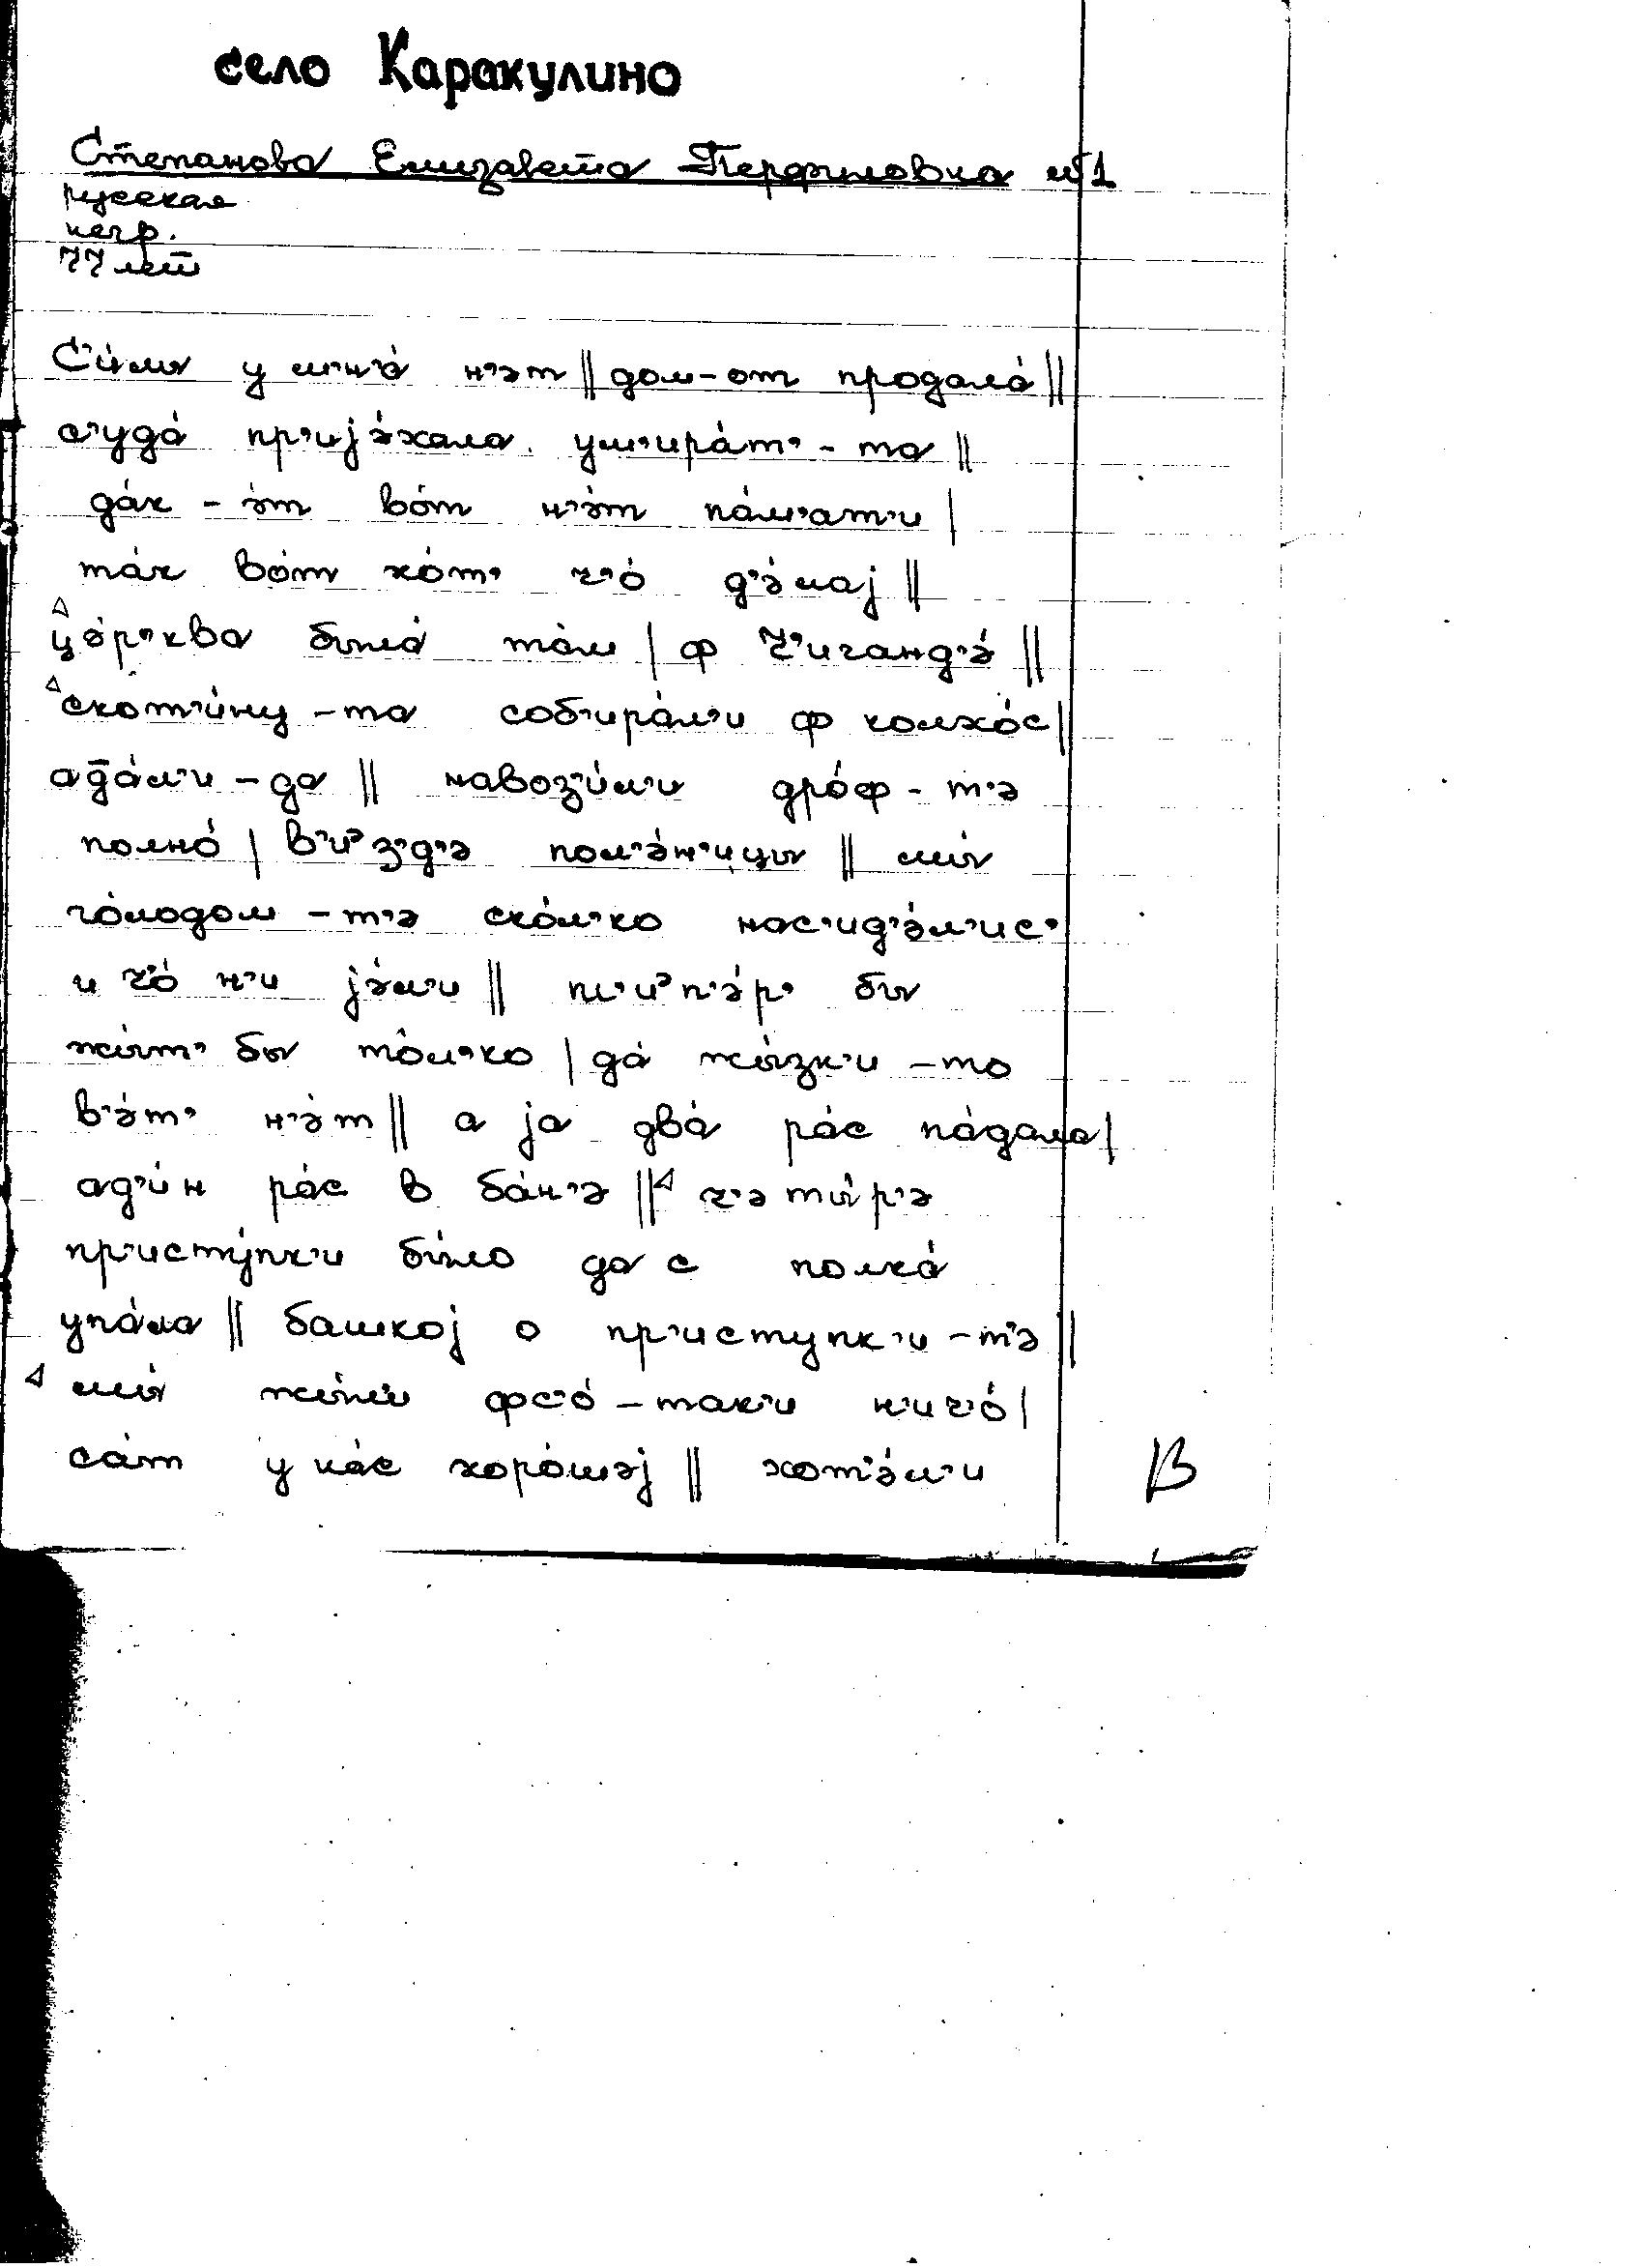 село Каракулино
Степанова Елизавета Перфиловна №1
русская
негр.
77 лет
С'и́лы у м'н'а́ н'эт || дом-от продала́ ||
с'уда́ пр'ијэ́хала ум'ира́т' - та ||
да́к - э́т во́т н'э́т па́м'ат'и |
та́к во́т хо́т' ч'о́ д'э́лај ||
цо́р'ква была́ та́м | ф Ч'иганд'э́ ||
скот'и́ну - та соб'ира́л'и ф колхо́с ||
ада́л'и - да || навоз'и́л'и дро́ф - т'э
полно́ | в'иᵊз'д'э пол'э́н'ицы || мы́
го́лодом - т'э ско́л'ко нас'ид'э́л'ис'
и ч'о́ н'и јэ́л'и || т'иᵊп'э́р' бы
жы́т' бы то̂л'ко | да́ жы́зн'и - то
в'э́т' н'э́т || а ја два́ ра́с па́дала |
ад'и́н ра́с в ба́н'э || ч'эты́р'э
пр'иступ́к'и бы́ло да с полка́
упа́ла || башкој о пр'иступк'и - т'э ||
мы́ жы́л'и фс'о́ - так'и н'ич'о́ |
са́т у на́с хоро́шэј || хот'э́л'и
В